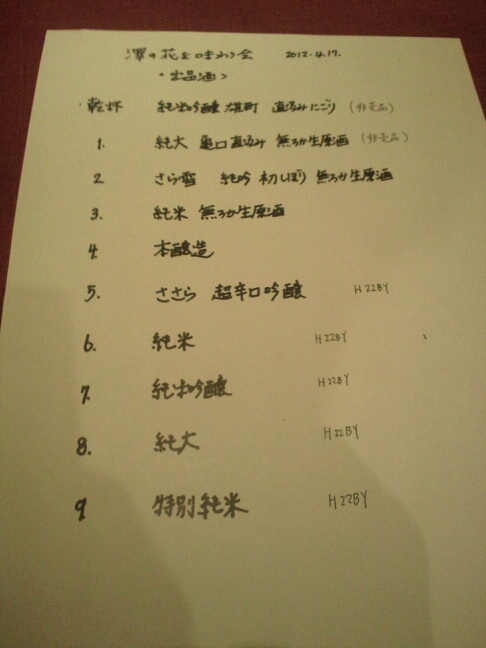 澤の花を味わう会 2012.4.17.
<出品酒>
乾杯 純米吟醸 雄町 直汲みにごり (非売品)
1. 純大 亀口直汲み 無ろか生原酒 (非売品)
2 さら雪 純吟 初しぼり 無ろか生原酒
3. 純米 無ろか生原酒
4. 本醸造
5. ささら 超辛口吟醸 H22BY
6. 純米 H22BY
7. 純米吟醸 H22BY
8. 純大 H22BY
9 特別純米 H22BY